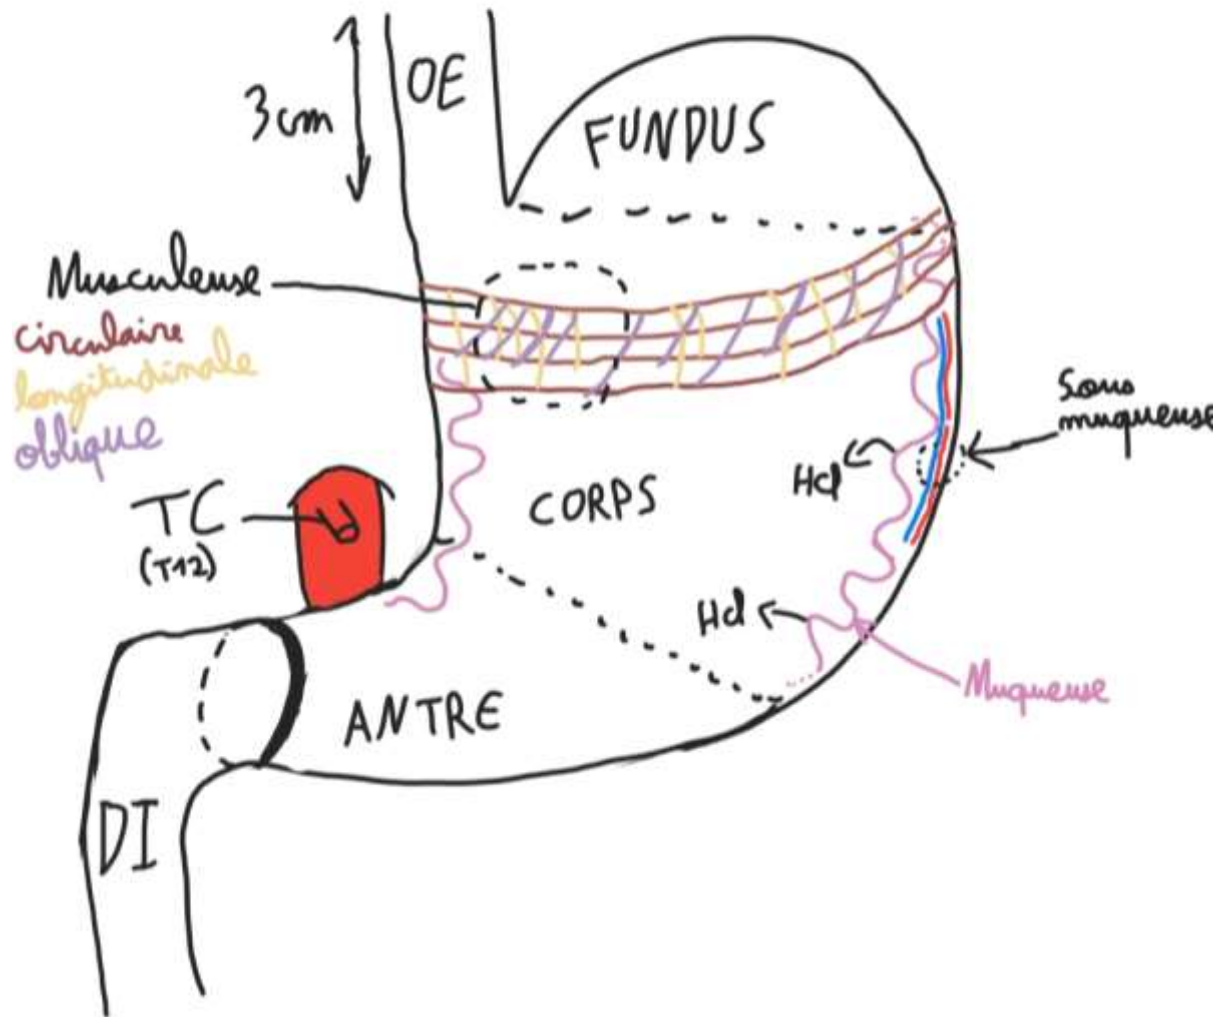 OE
3cm
FUNDUS
Musculeuse
circulaire
longitudinale
oblique
Sous
muqueuse
Hcl
CORPS
TC
(T12)
Hcl
Muqueuse
ANTRE
DI